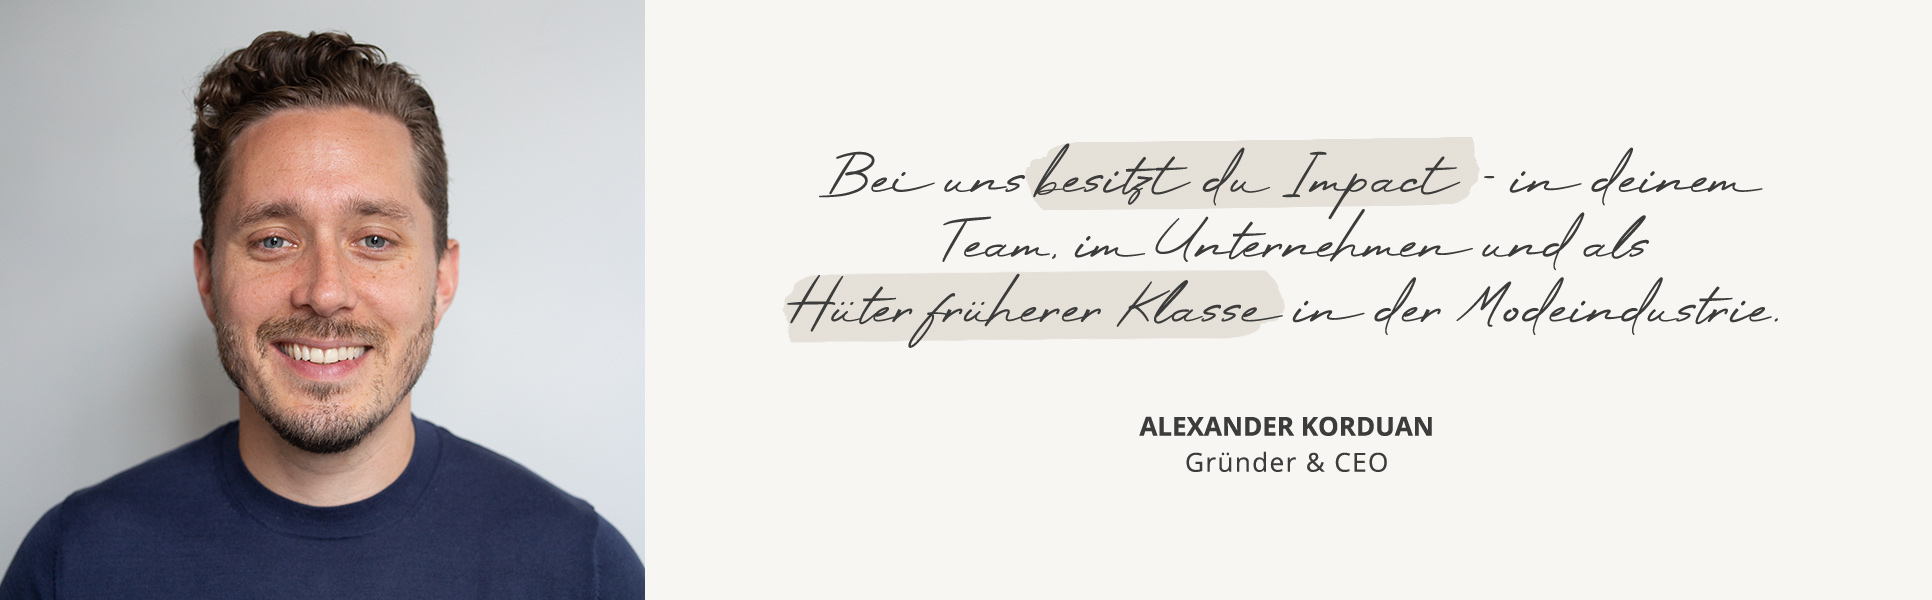 Bei uns besitzt du Impact - in deinem
Team, im Unternehmen und als
Hüter früherer Klasse in der Modeindustrie.
ALEXANDER KORDUAN
Gründer & CEO